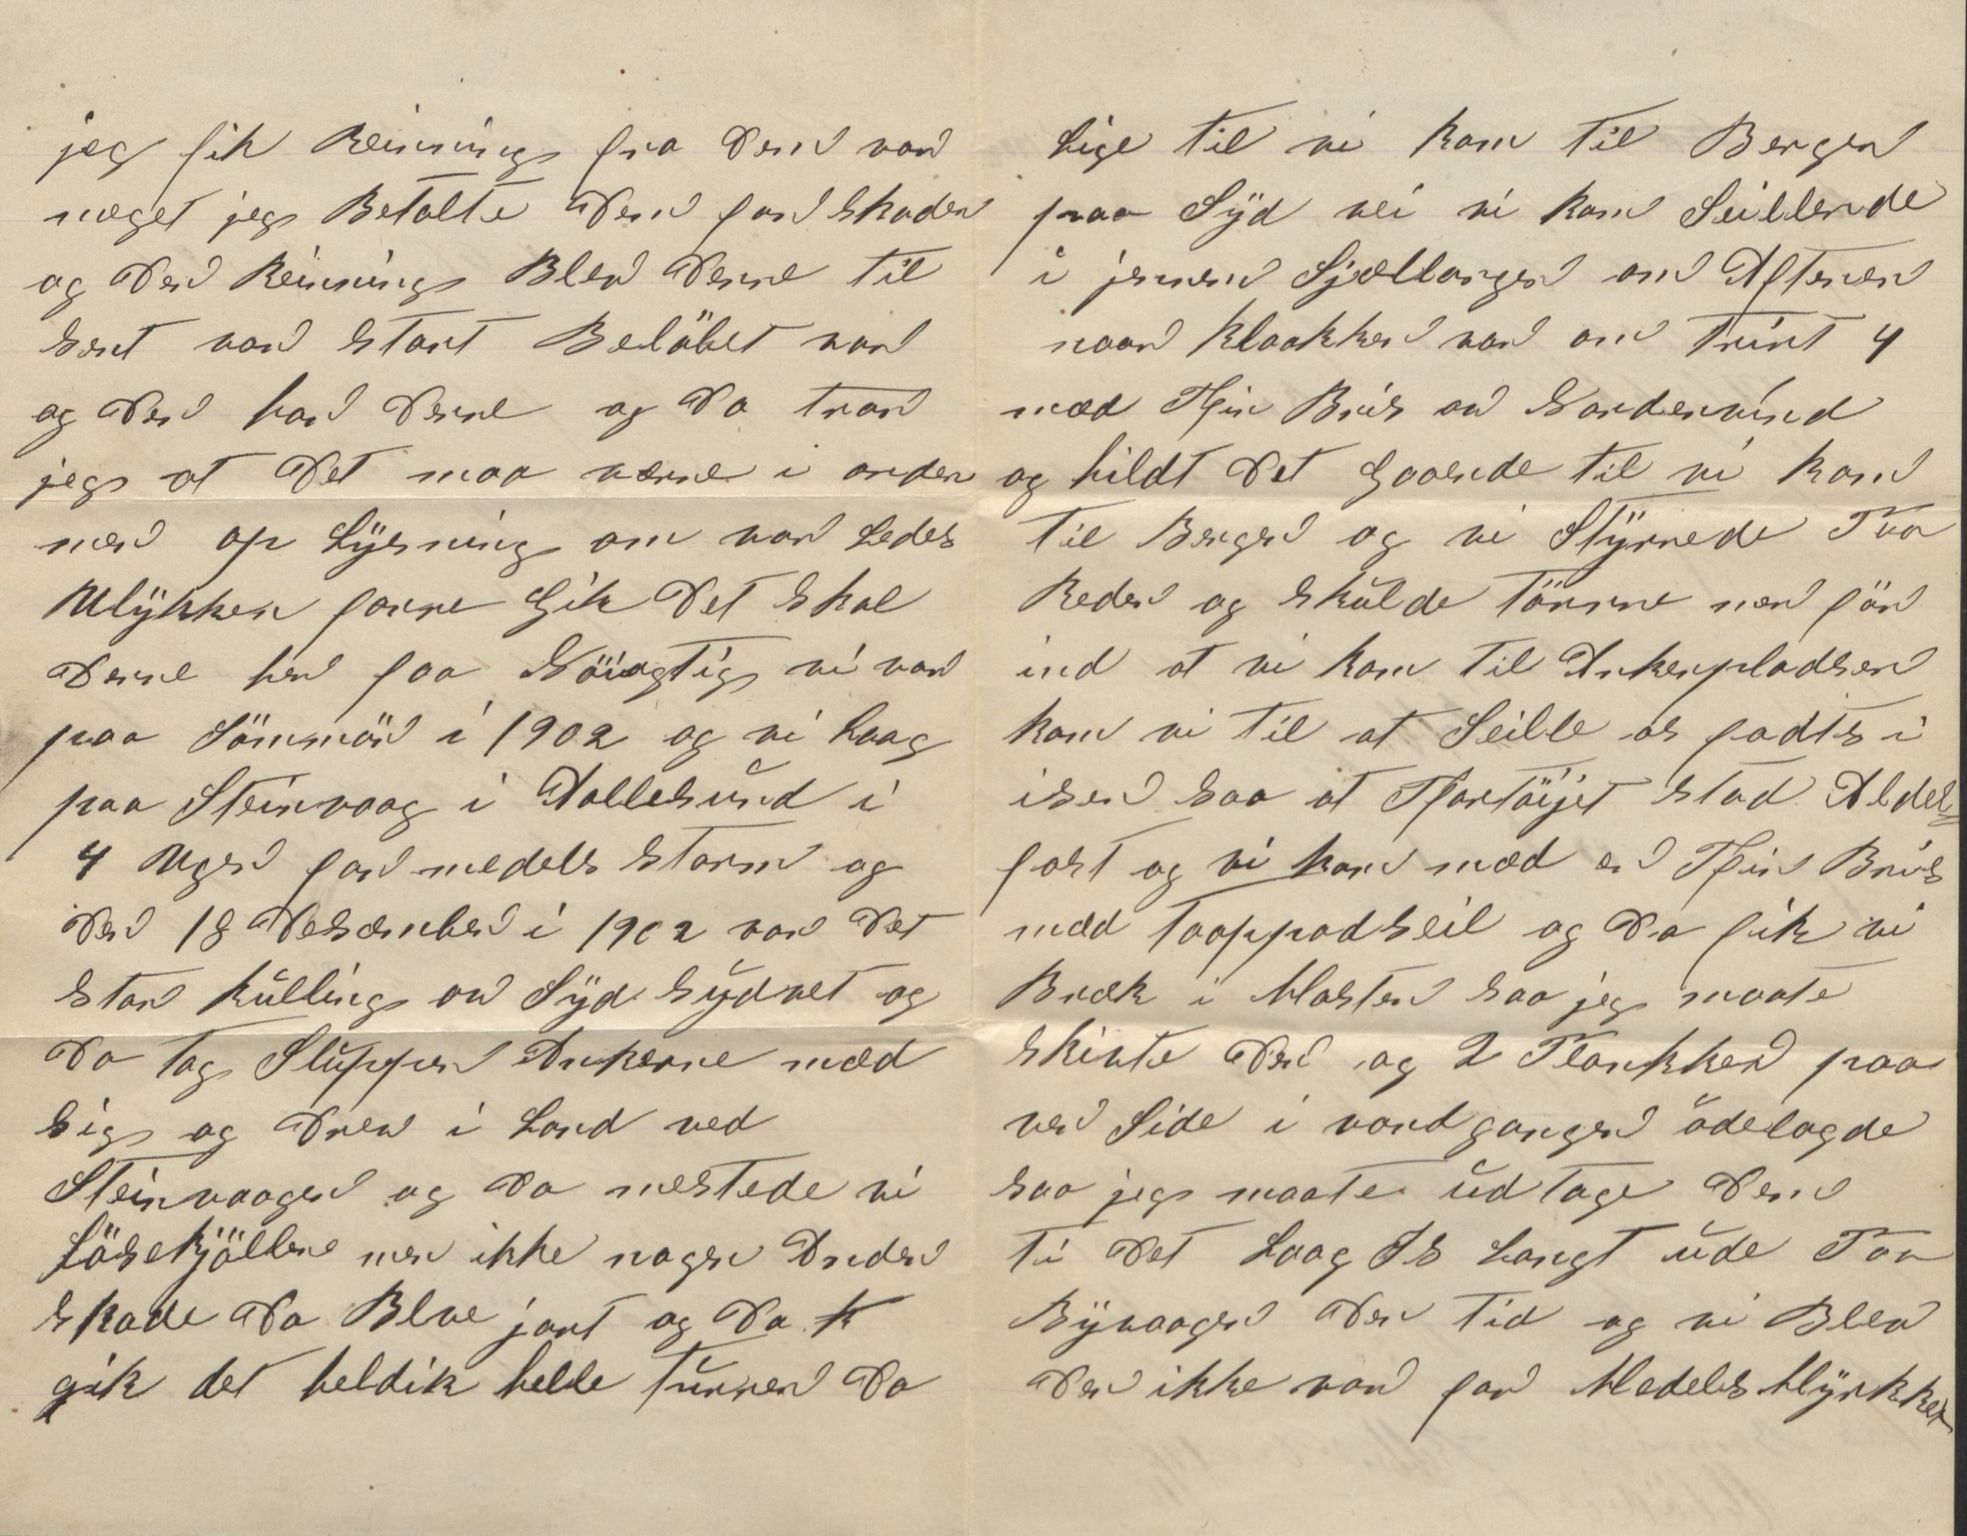 jeg fik Reining fra Dem vor
meget jeg Betalte Dem for Skaden
og Den Reining Blev Dere til
sent vor stort Belöbet var
og Den har Dere og Da tror
jeg at Det maa være i orden
men op Lysning om vor Ledes
Ulykken forre Gik Det Skal
Dere her faa Nöiagtig vi var
paa Sömmör i 1902 og vi Laag
paa Steinvaag i Aallesund i
4 Uger for medels Storm og
Den 18 Desember i 1902 var Det
Stor Kulling av Syd Sydvet og
Da tog Sluppen Ankerne med
Sig og Drev i Land ved
Steinvaagen og Da mestede vi
Lösekjöllene men ikke nogen Anden
Skade Da Blve jort og Da k
gik det heldik helle turren Da
Lige til vi kom til Bergen
paa Syd vei vi kom Seillende
i jennem Sjællangen om Aftenen
naar Klaakken var om trint 4
med Fin Bris av Nordenvind
og hildt Det Gaaende til vi kom
til Bergen og vi Styrrede Paa
Reden og skulde törne men för
ind at vi kom til Ankerpladsen
kom vi til at Seille os fadts i
isen saa at Fartöijet stod Aldels
fast og vi kom med en Fin Bris
med Toappadseil og Da fik vi
Bræk i Masten saa jeg maate
skivte Den og 2 Plankker paa
ver Side i vandgangen ödelagde
saa jeg maate udtage Dem
ti Det Laag Is Langt ude Paa
Byvaagen Den tid og vi Blev
Den ikke var for Medels Mýrkker